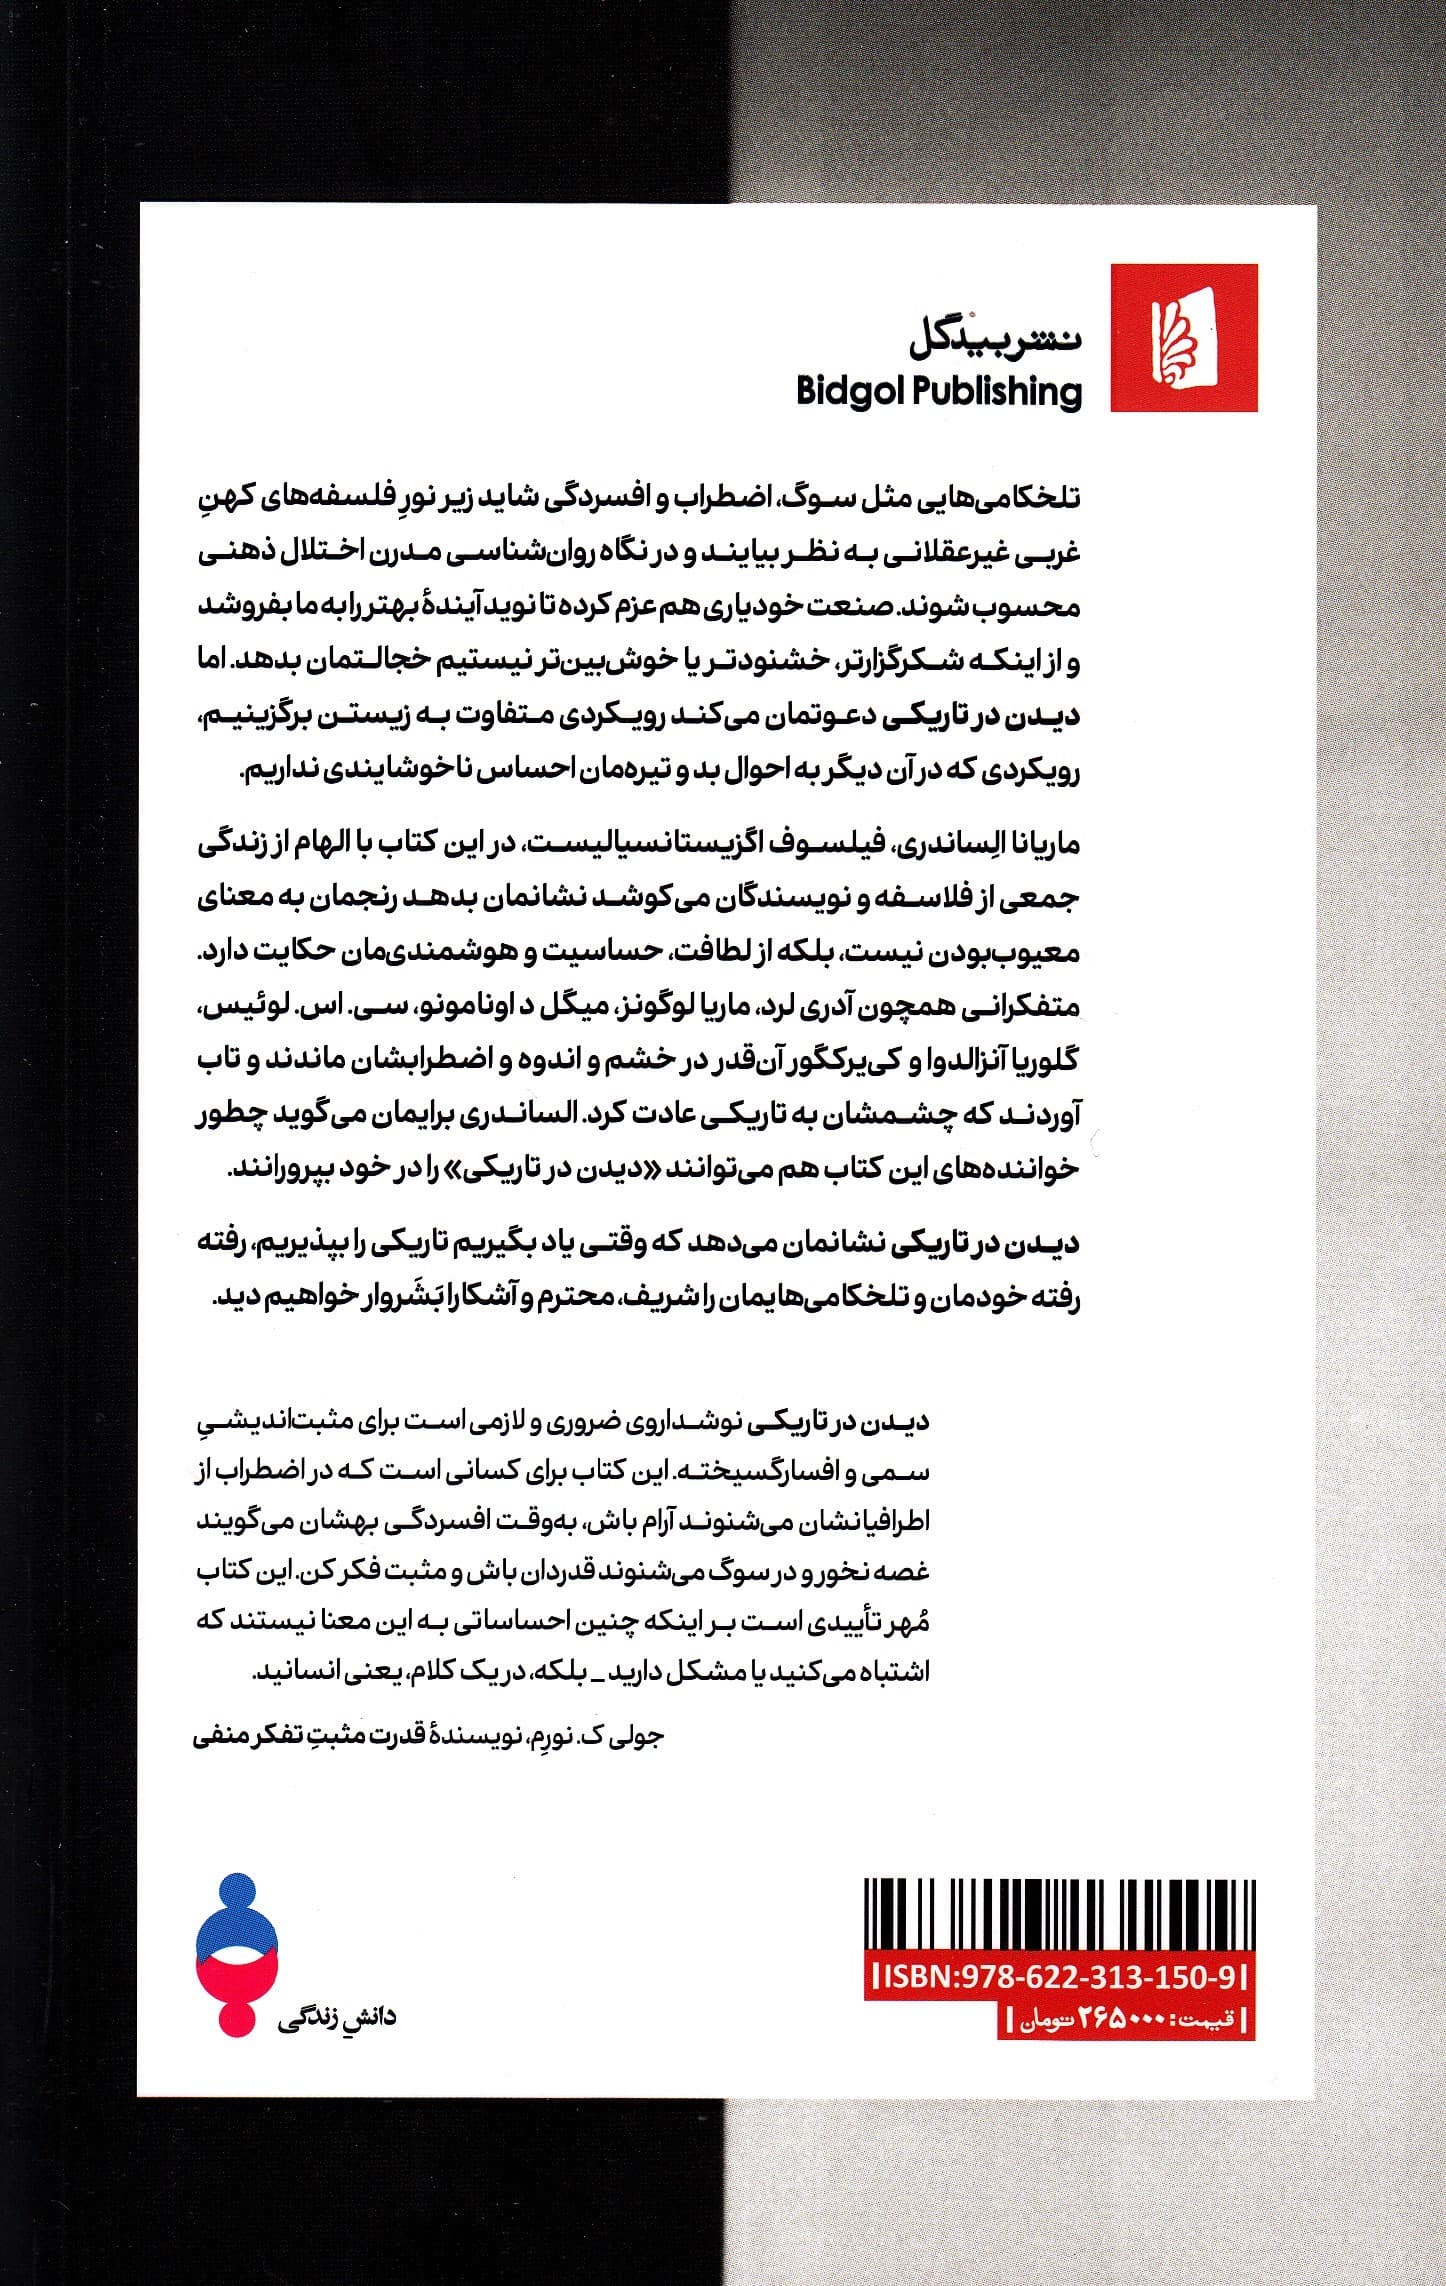 نشر بیدگل
Bidgol Publishing
تلخکامی‌هایی مثل سوگ، اضطراب و افسردگی شاید زیر نورِ فلسفه‌های کهنِ
غربی غیرعقلانی به نظر بیایند و در نگاه روان‌شناسی مدرن اختلال ذهنی
محسوب شوند. صنعت خودیاری هم عزم کرده تا نوید آیندۀ بهتر را به ما بفروشد
و از اینکه شکرگزارتر، خشنودتر یا خوش‌بین‌تر نیستیم خجالتمان بدهد. اما
دیدن در تاریکی دعوتمان می‌کند رویکردی متفاوت به زیستن برگزینیم،
رویکردی که در آن دیگر به احوال بد و تیره‌مان احساس ناخوشایندی نداریم.
ماریانا الِساندری، فیلسوف اگزیستانسیالیست، در این کتاب با الهام از زندگی
جمعی از فلاسفه و نویسندگان می‌کوشد نشانمان بدهد رنجمان به معنای
معیوب‌بودن نیست، بلکه از لطافت، حساسیت و هوشمندی‌مان حکایت دارد.
متفکرانی همچون آدری لرد، ماریا لوگونز، میگل د اونامونو، سی. اس. لوئیس،
گلوریا آنزالدوا و کی‌یرکگور آن‌قدر در خشم و اندوه و اضطرابشان ماندند و تاب
آوردند که چشمشان به تاریکی عادت کرد. الساندری برایمان می‌گوید چطور
خواننده‌های این کتاب هم می‌توانند «دیدن در تاریکی» را در خود بپرورانند.
دیدن در تاریکی نشانمان می‌دهد که وقتی یاد بگیریم تاریکی را بپذیریم، رفته
رفته خودمان و تلخکامی‌هایمان را شریف، محترم و آشکارا بَشَروار خواهیم دید.
دیدن در تاریکی نوشداروی ضروری و لازمی است برای مثبت‌اندیشیِ
سمی و افسارگسیخته. این کتاب برای کسانی است که در اضطراب از
اطرافیانشان می‌شنوند آرام باش، به‌وقت افسردگی بهشان می‌گویند
غصه نخور و در سوگ می‌شنوند قدردان باش و مثبت فکر کن. این کتاب
مُهر تأییدی است بر اینکه چنین احساساتی به این معنا نیستند که
اشتباه می‌کنید یا مشکل دارید _ بلکه، در یک کلام، یعنی انسانید.
جولی ک. نورِم، نویسندۀ قدرت مثبتِ تفکر منفی
ISBN:978-622-313-150-9
قیمت: ۲۶۵۰۰۰ تومان
دانشِ زندگی